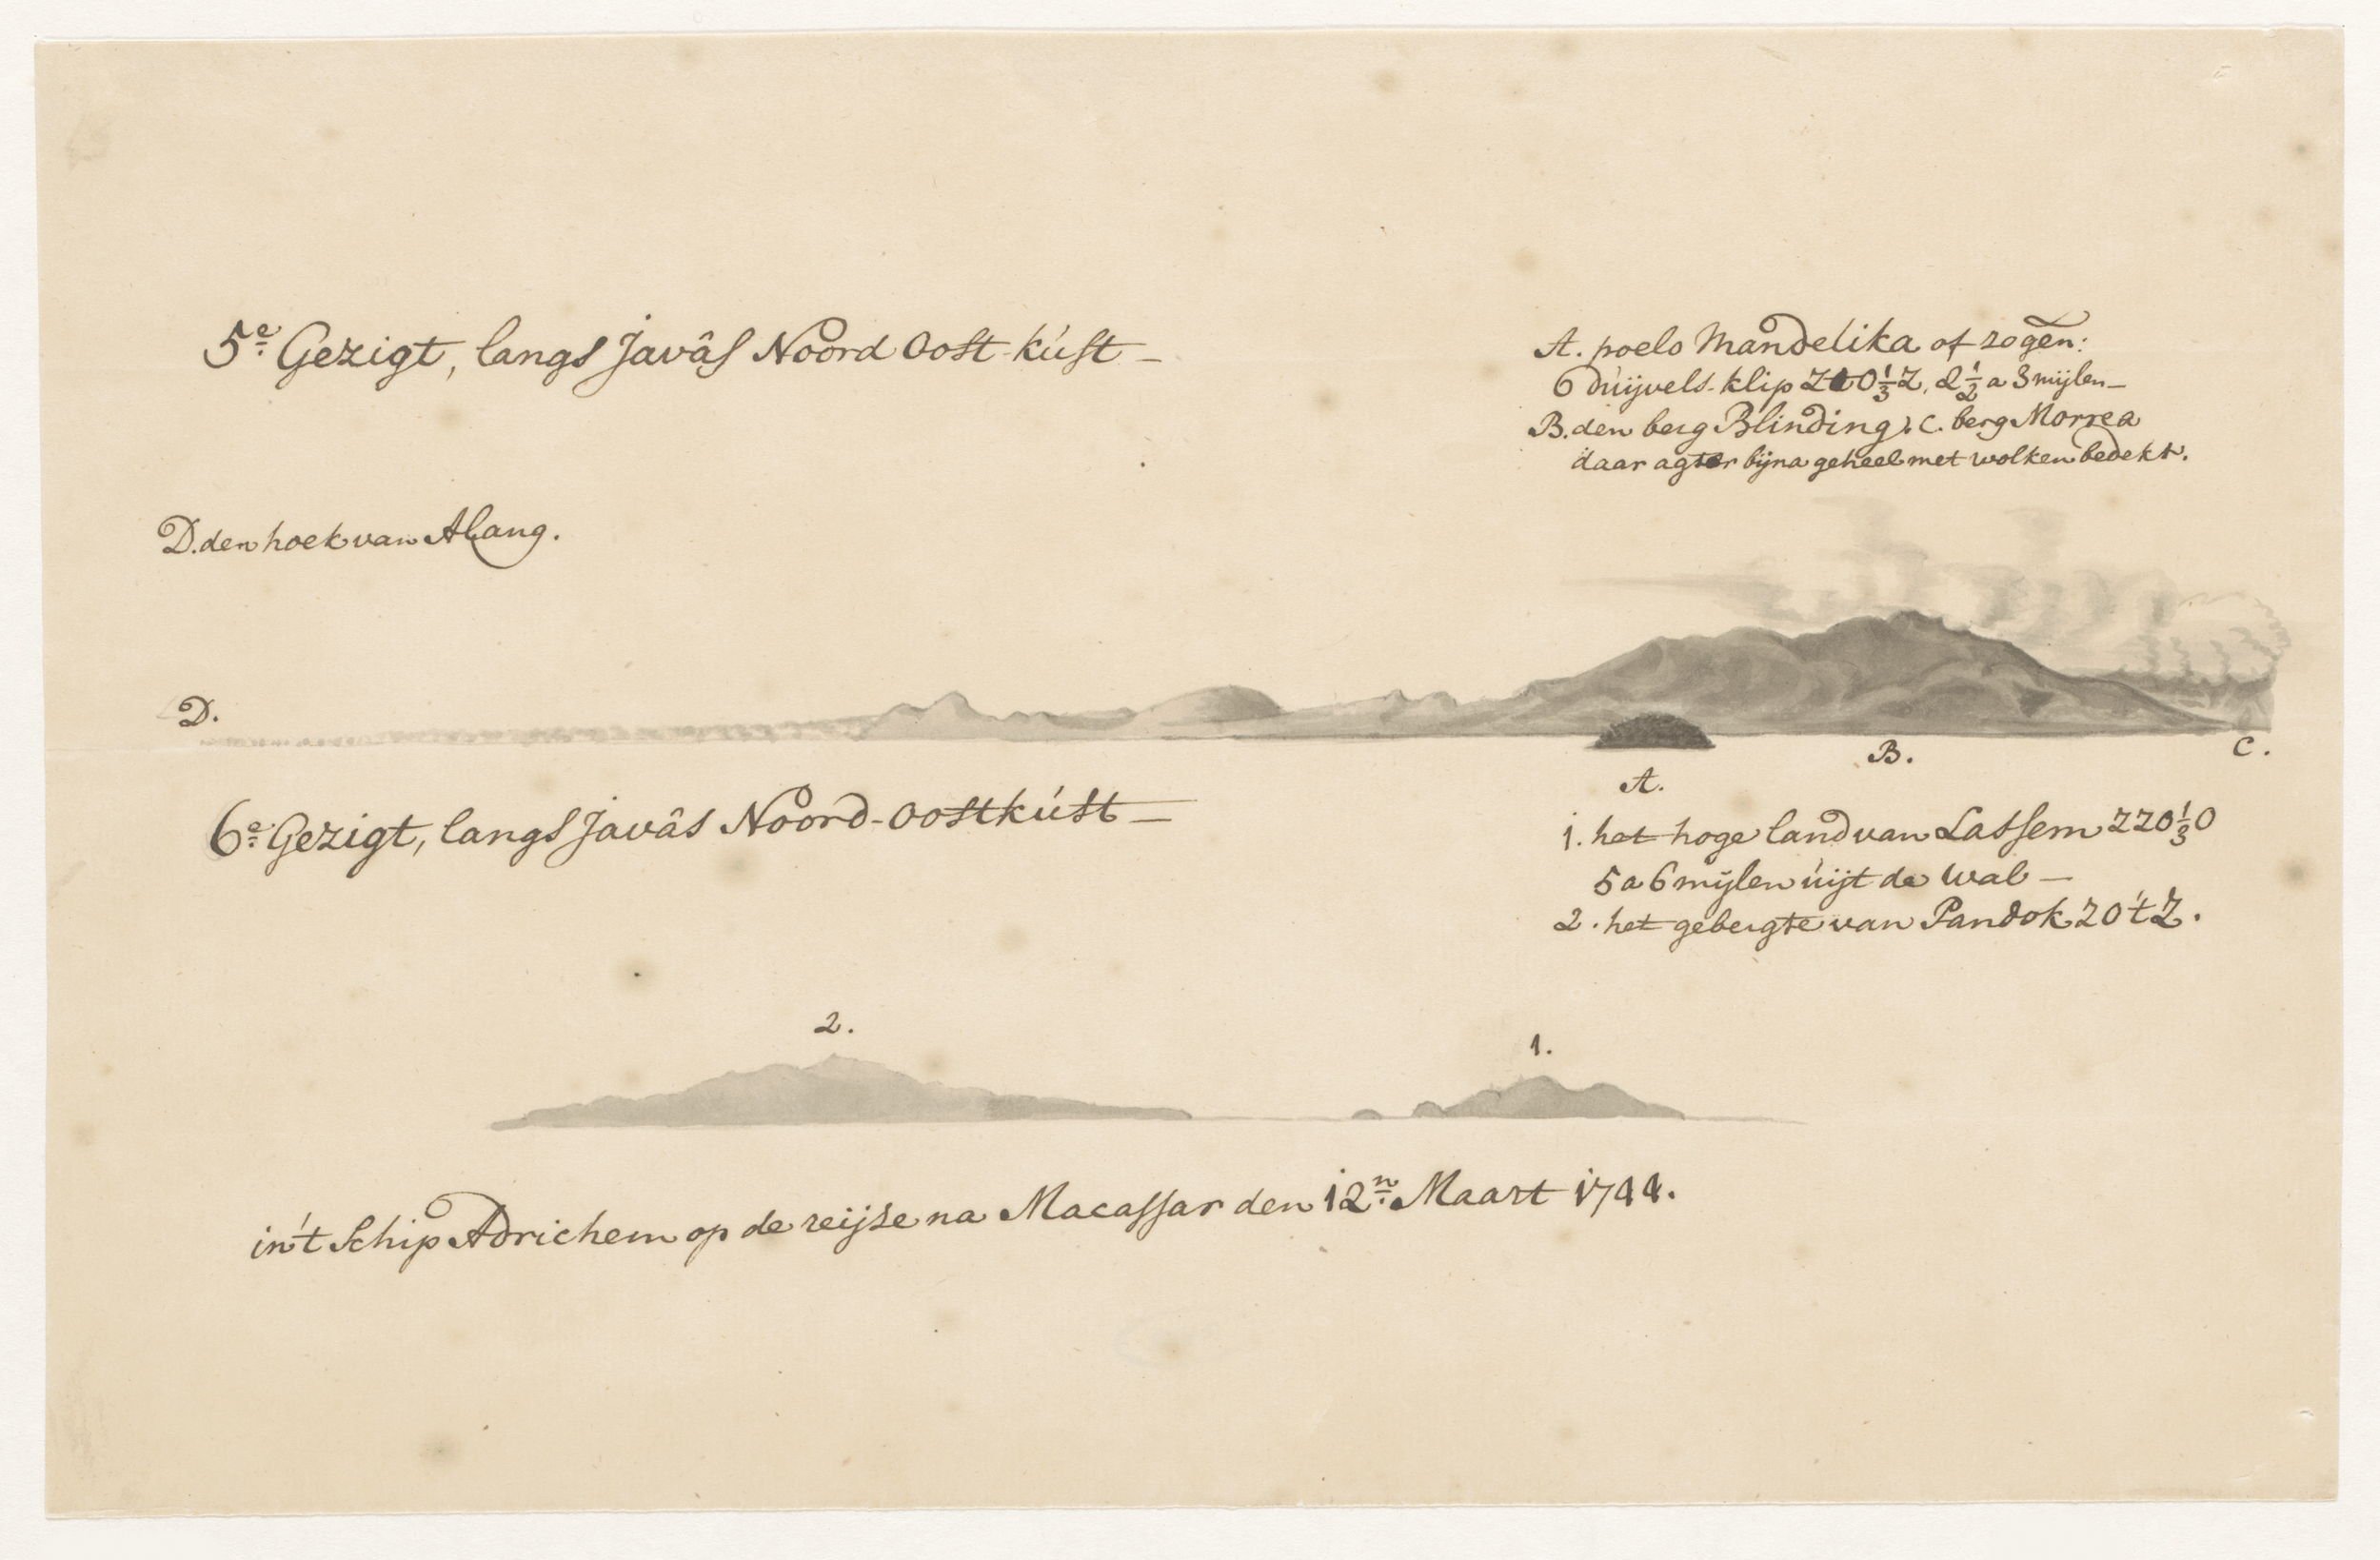 5e Gezigt, langs Javâs Noord Oost-kúst —
A. poelo Mandelika of zogen:
dúijvels-klip Z O 1/3 Z, 2 1/2 a 3 mijlen —
B. den berg Blinding, C. berg Morrea
daar agter bijna geheel met wolken bedekt.
D. den hoek van Alang.
D.
B.
C.
A.
6e Gezigt, langs Javâs Noord-Oostkúst —
1. het hoge land van Lassem ZZO 1/3 O
5 a 6 mijlen úijt de wal —
2. het gebergte van Pandok ZO 't Z.
2.
1.
in 't Schip Adrichem op de reijse na Macassar den 12n Maart 1744.